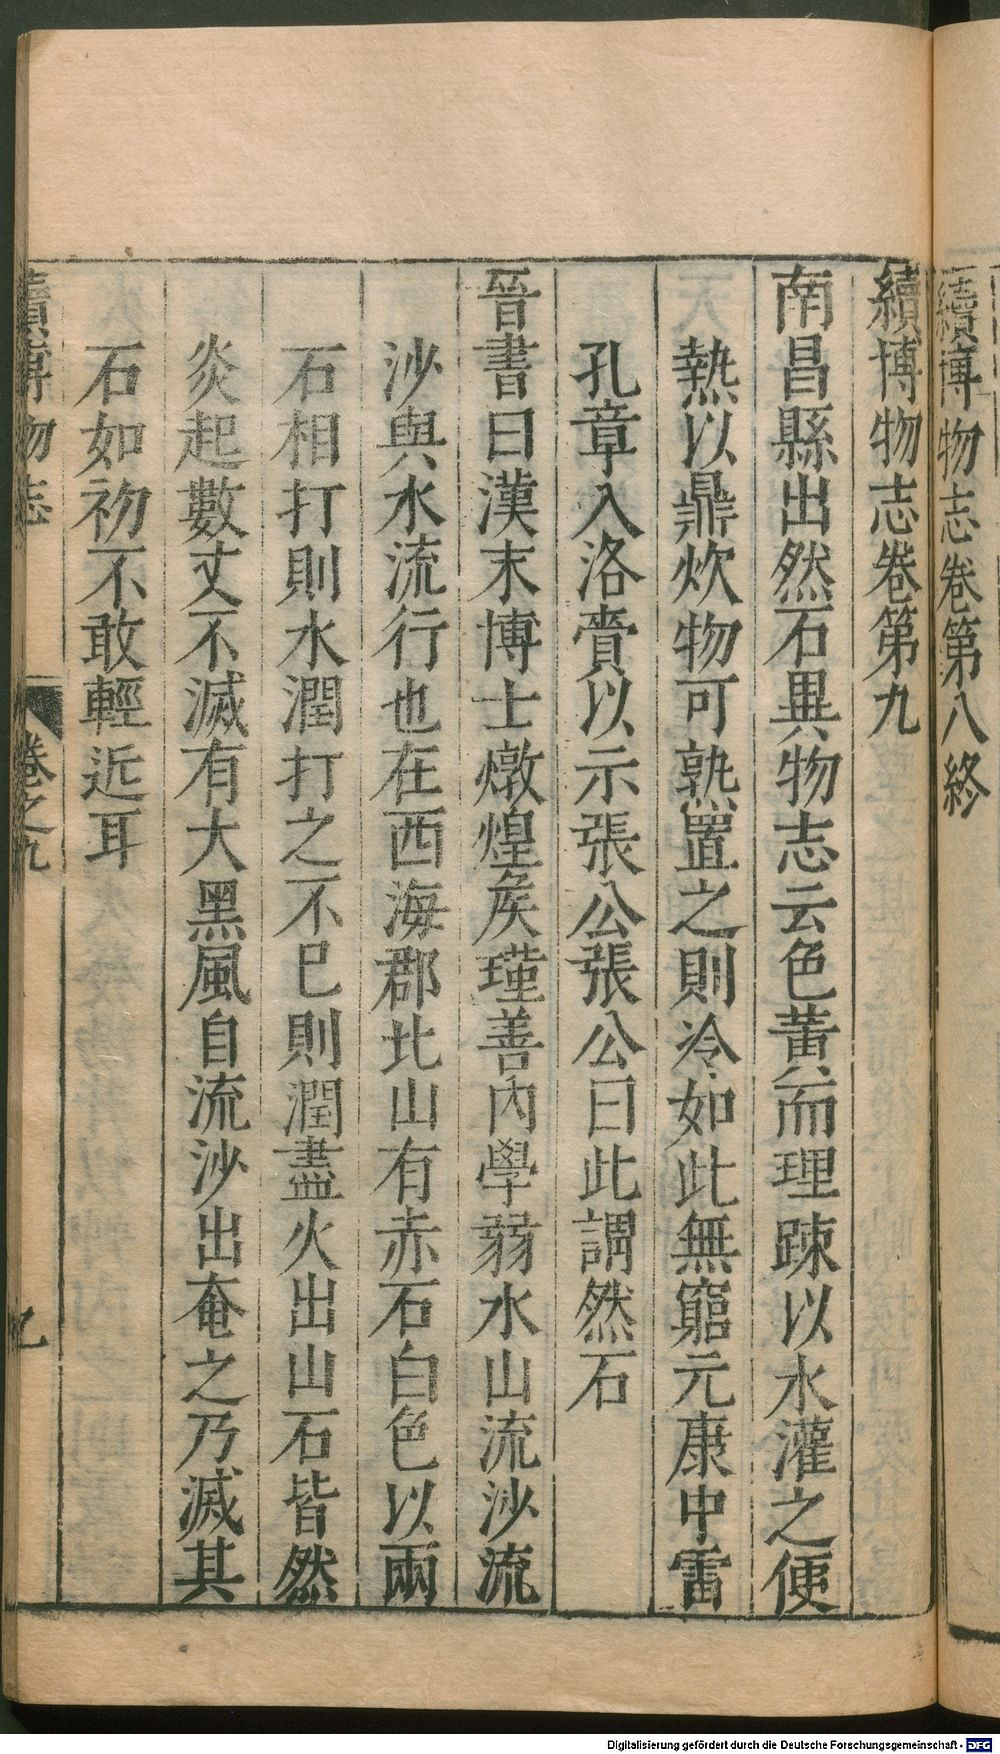 續博物志卷第八終
續博物志卷第九
南昌縣出然石異物志云色黃而理踈以水灌之便
熱以鼎炊物可熟置之則冷如此無窮元康中雷
孔章入洛賷以示張公張公曰此謂然石
晉書曰漢末博士燉煌矦瑾善內學弱水山流沙流
沙與水流行也在西海郡北山有赤石白色以兩
石相打則水潤打之不已則潤盡火出山石皆然
炎起數丈不滅有大黑風自流沙出奄之乃滅其
石如初不敢輕近耳
續博物志
卷之九
Digitalisierung gefördert durch die Deutsche Forschungsgemeinschaft - DFG